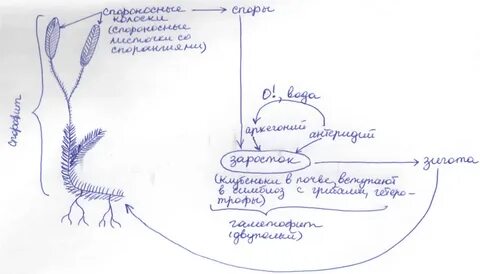 спороносные
колоски
(спороносные
листочки со
спорангиями)
споры
спорофит
О!, вода
архегоний
антеридий
заросток
зигота
(клубеньки в почве, вступают
в симбиоз с грибами, гетеро-
трофы)
гаметофит
(двуполый)